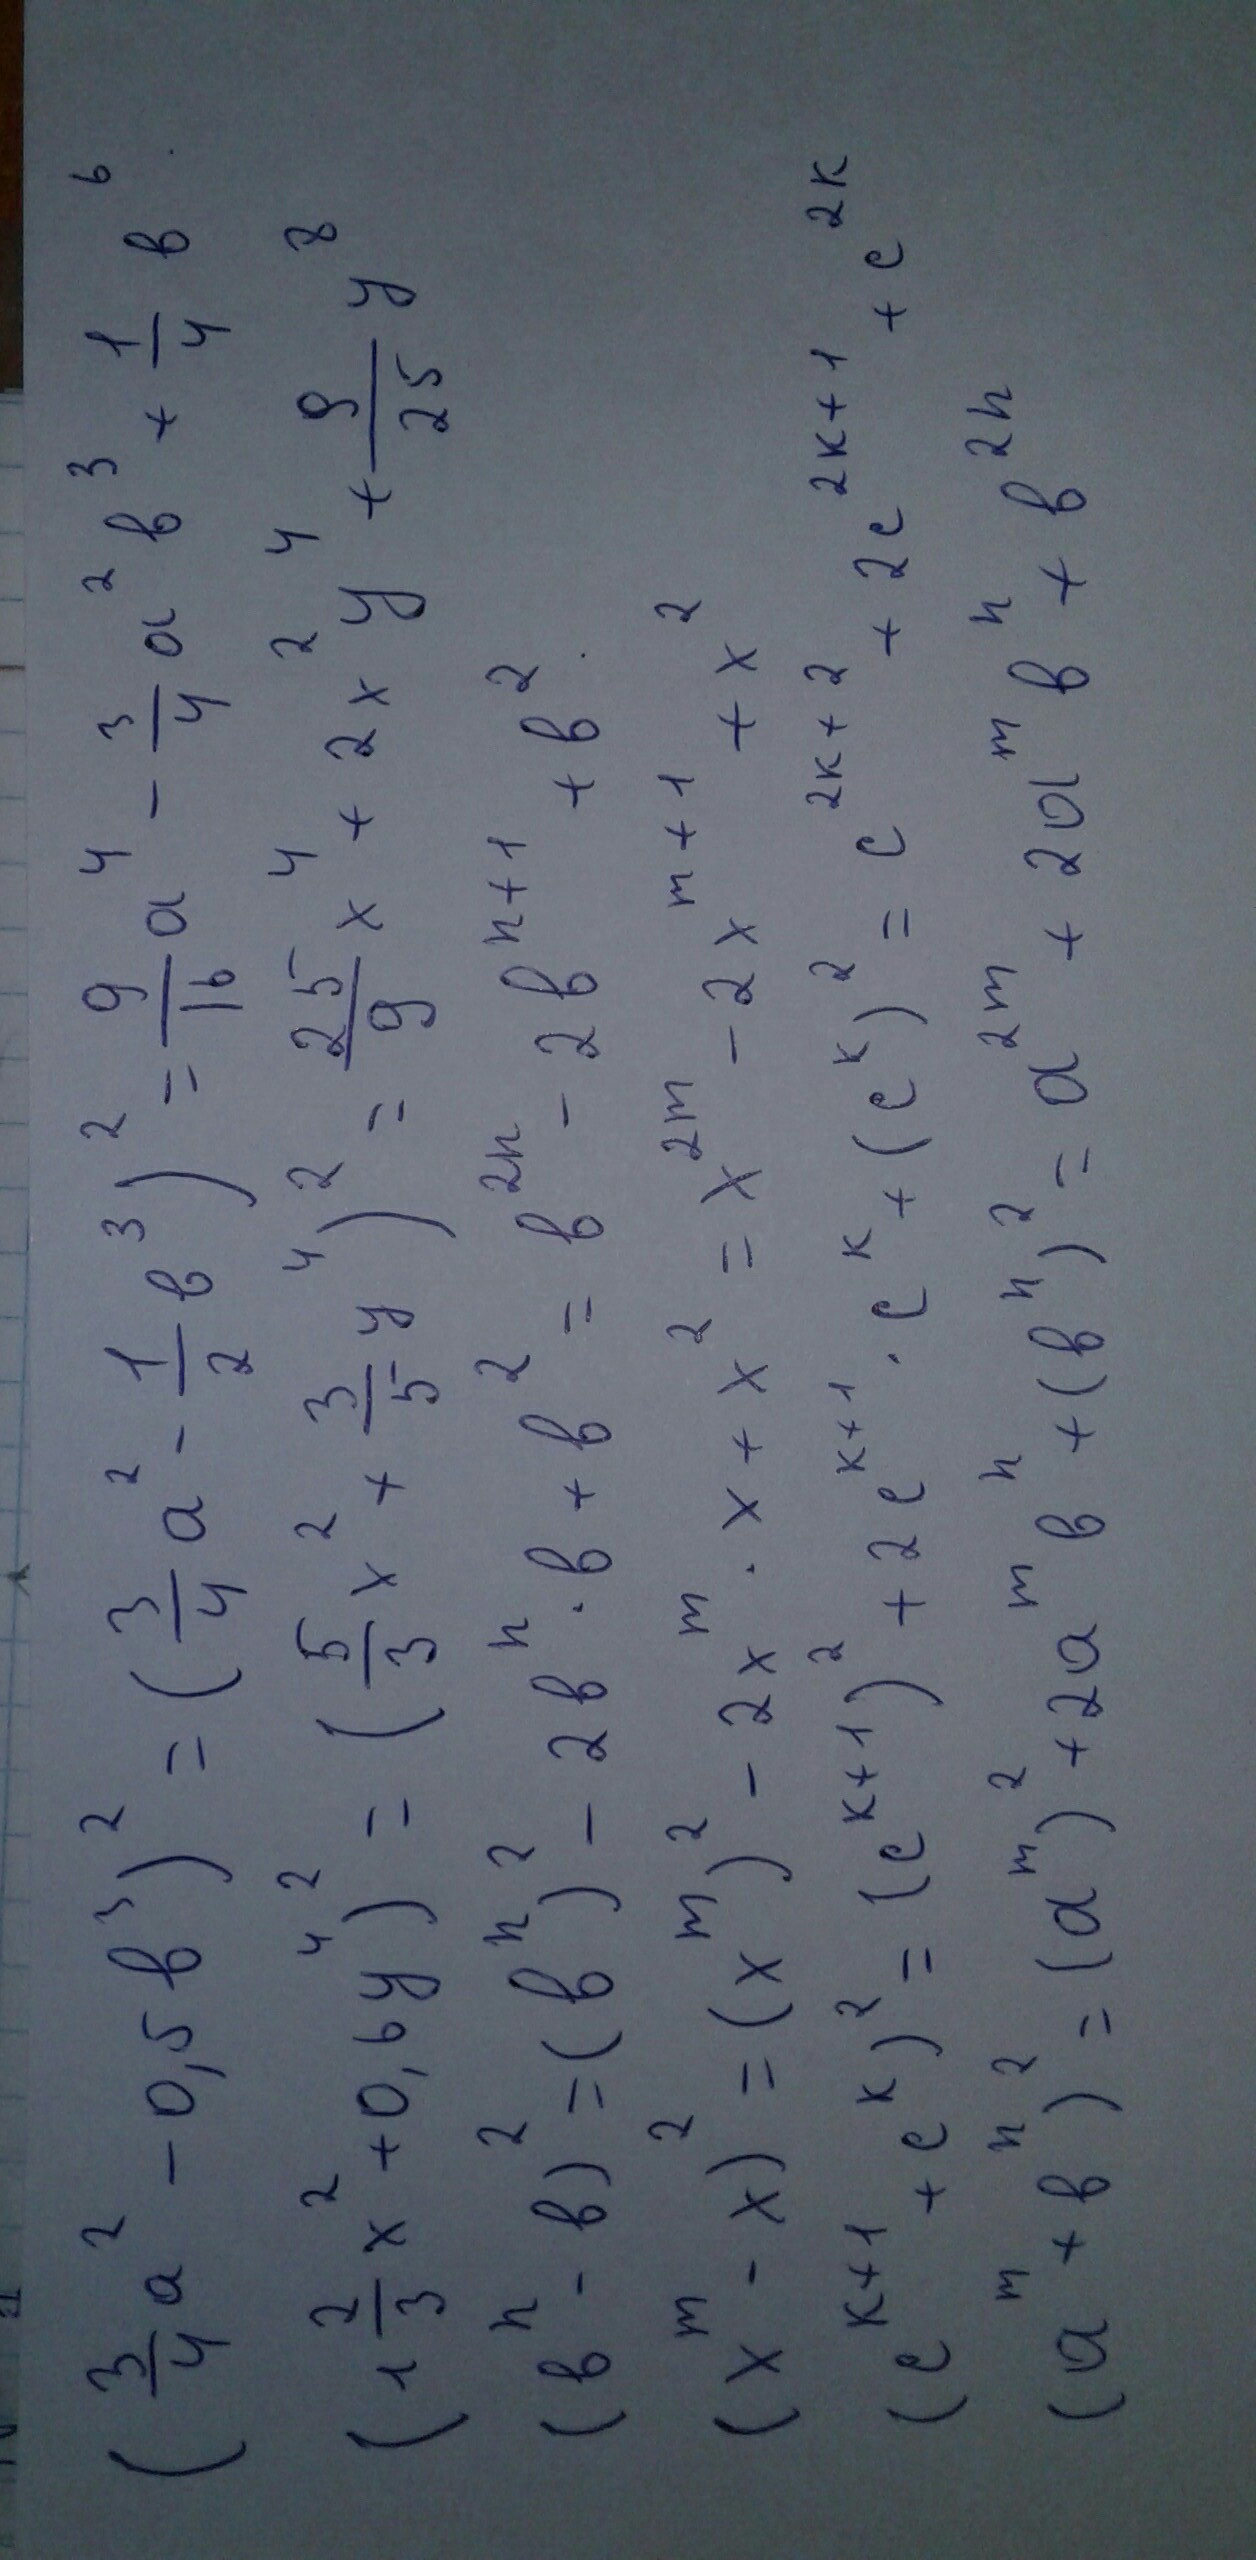 (3/4 a² - 0,5 в³)² = (3/4 a² - 1/2 в³)² = 9/16 a⁴ - 3/4 a² в³ + 1/4 в⁶.
(1 2/3 x² + 0,6 y⁴)² = (5/3 x² + 3/5 y⁴)² = 25/9 x⁴ + 2x² y⁴ + 9/25 y⁸
(вⁿ - в)² = (вⁿ)² - 2вⁿ · в + в² = в²ⁿ - 2вⁿ⁺¹ + в².
(xᵐ - x)² = (xᵐ)² - 2xᵐ · x + x² = x²ᵐ - 2xᵐ⁺¹ + x²
(cᵏ⁺¹ + cᵏ)² = (cᵏ⁺¹)² + 2cᵏ⁺¹ · cᵏ + (cᵏ)² = c²ᵏ⁺² + 2c²ᵏ⁺¹ + c²ᵏ
(aᵐ + вⁿ)² = (aᵐ)² + 2aᵐ вⁿ + (вⁿ)² = a²ᵐ + 2aᵐ вⁿ + в²ⁿ